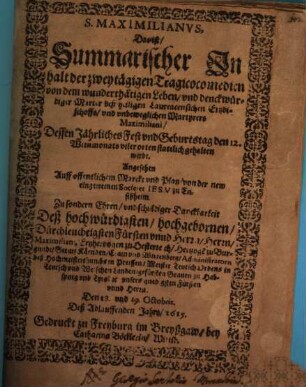 S. MAXIMILIANVS,
Das ist/
Summarischer In
halt der zweytägigen Tragicocomedien
von dem wunderthätigen Leben/ vnd denckwür-
diger Marter deß heiligen Laureacensischen Ertzbi-
schoffs/ vnd vnbeweglichen Martyrers
Maximiliani/
Dessen Jährliches Fest vnd Geburtstag den 12.
Weinmonats viler orten feyrlich gehalten
werdt.
Angesehen
Auff offentlichem Marckt vnd Platz von der new
eingetretnen Societet IESV zu En
sißheim.
Zu sondern Ehren/ vnd schuldiger Danckbarkeit
Deß hochwürdigsten/ hochgebornen/
Durchleuchtigsten Fürsten vnnd Herrn/ Herrn/
Maximilian, Ertzhertzogen zu Oesterreich/ Hertzogen zu Bur-
gundi/
deß Hochmeisterthumbs in Preussen/ Meister Teutsch Ordens in
Teutsch vnd Welschen Landen/ gefürsten Grauen zu Habs-
purg vnd Tyrol &c. vnsers gnedigsten Fürsten
vnnd Herrn.
Den 18. vnd 19. Octobris.
Deß Ablauffenden Jahrs/ 1615.
Gedruckt zu Freyburg im Breyßgaw/ bey
Catharina Böcklerin/ Witib.